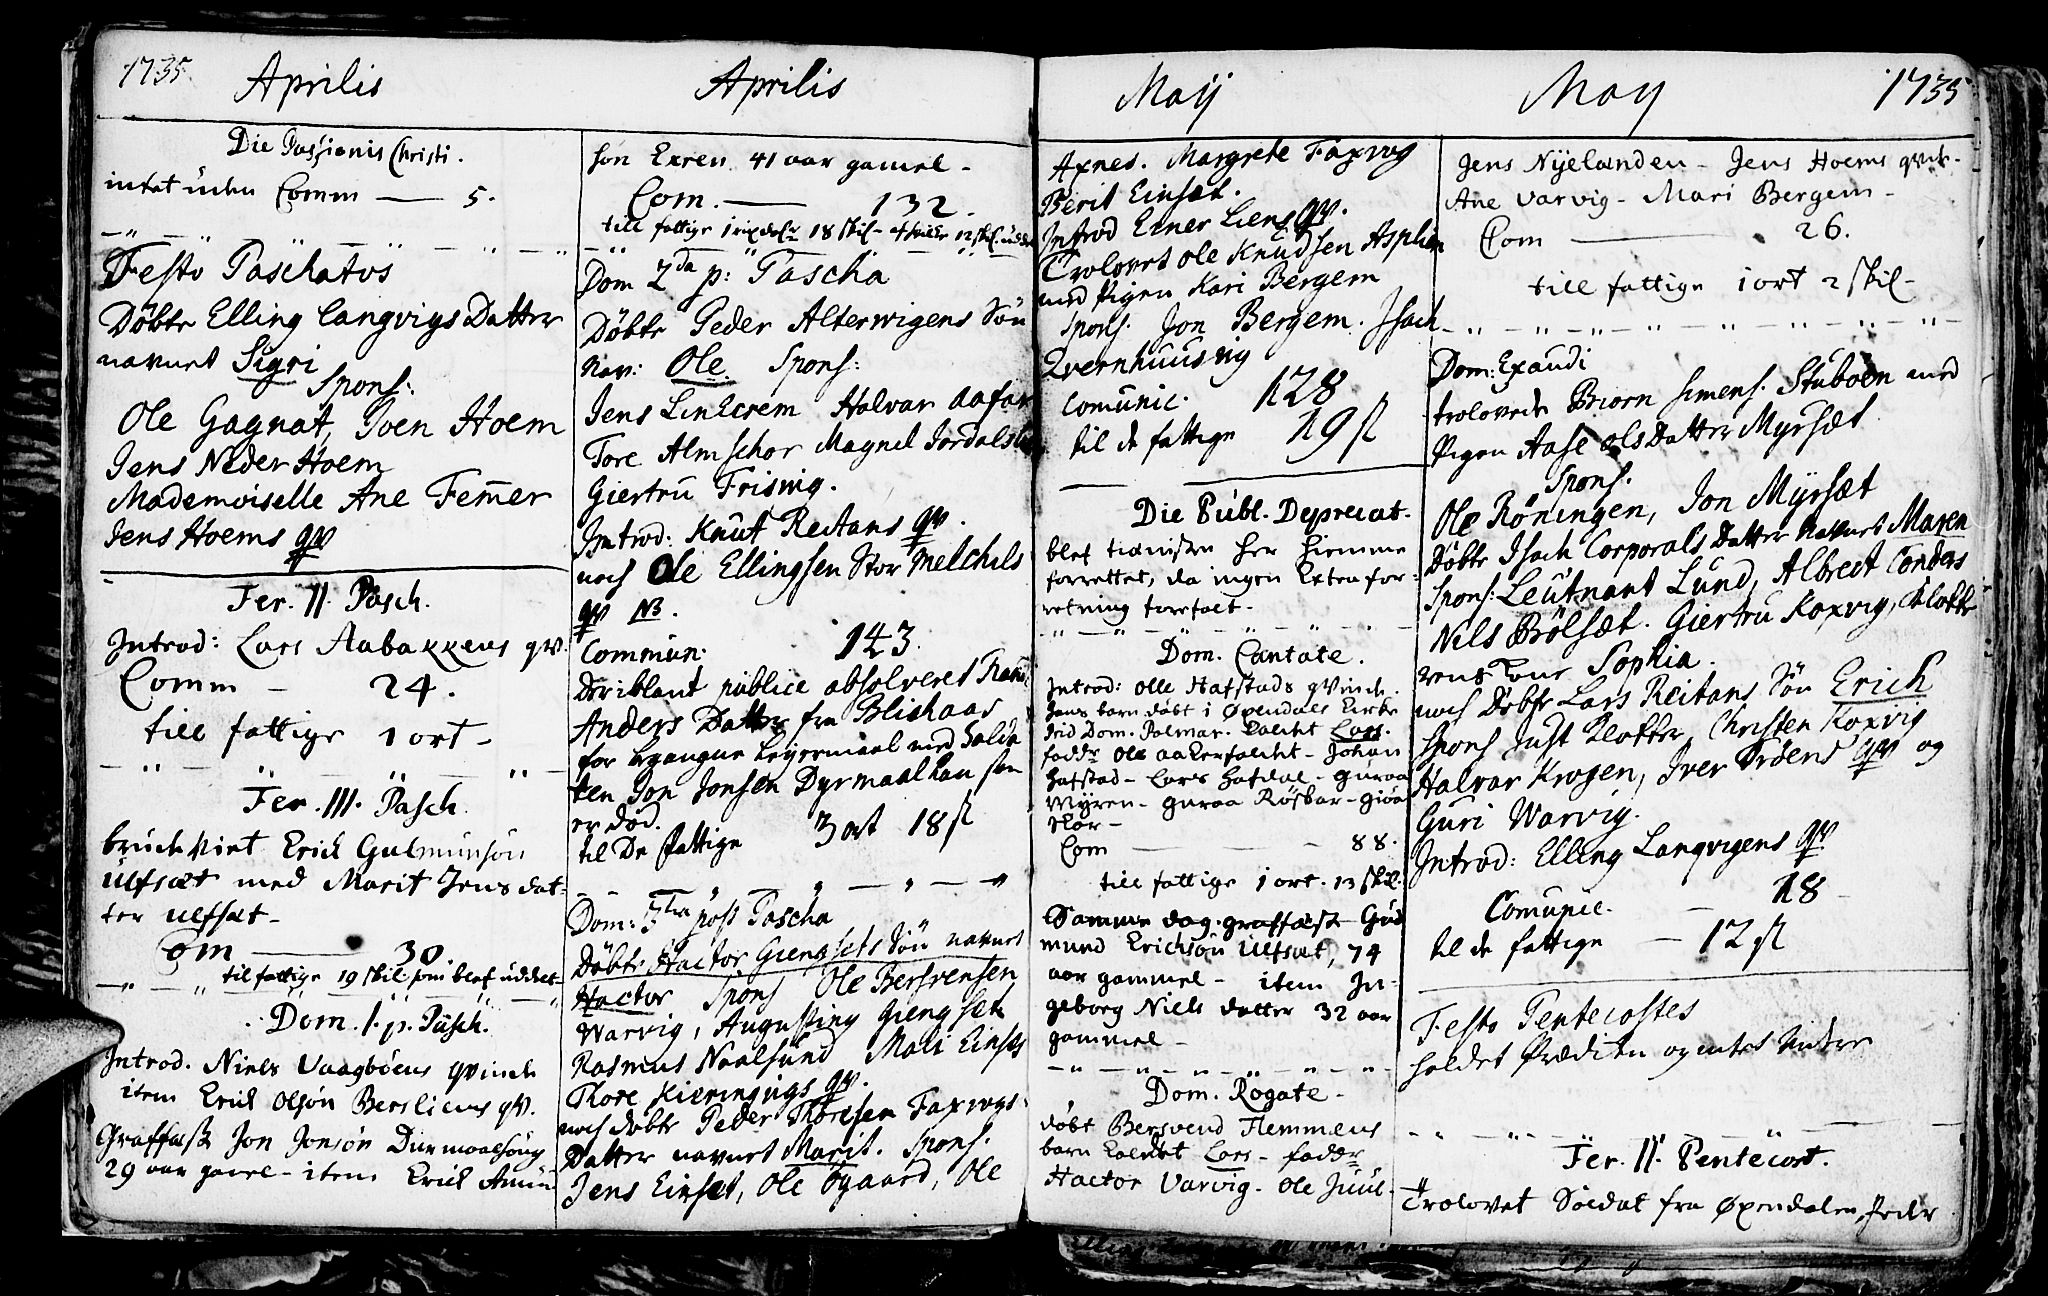 1735 Aprilis
Die Passionis Christi.
intet uden Comm — 5.
Festo Paschatos
Döbte Elling Langvigs Datter
navnet Sigri
Spons:
Ole Gagnat, Iven Hoem
Jens Neder Hoem
Mademoiselle Ane Femer
Jens Hoems qv
Fer. II. Pasch.
Introd: Lars Aabakkens qv.
Comm — 24.
till fattige 1 ort —
Fer. III. Pasch.
brudeviet Erick Gulmunsön
Ulfsæt med Marit Jens dat-
ter Ulfsæt —
Com — 30.
til fattige 19 skil som blef uddel-
Dom. 1. p. Pasch.
Introd. Niels Vaagböens qvinde
item Erick Olsön Bersliens qv.
Graffæst Jon Jonsön Durmaalhoug
29 aar gamel — item Erick Amun
Aprilis
sön Exren 41 aar gamel —
Com. — 132.
till fattige 1 rixdaler 18 skil —
Dom 2da p: Pascha
Döbte Peder Alterwigens Sön
Nav: Ole. Spons:
Jens Linkrem Halvar Aafar
Tore Almschor Magnel Jordalsli
Giertru Frisvig.
Introd: Knut Reitans qv.
noch Ole Ellingsen Stor Melchils
qv NB.
Commun: 143
Der iblant publice absolveret
Anders Datter fra Blichaas
for begangne Leyermaal med Solda
ten Jon Jonsen Dyrmaalhau sen
er död.
til De Fattige 3 ort 18 s
Dom: 3tia post Pascha
Döbt: Hactor Giengsets Sön navnet
Hactor Spons Ole Bersvensen
Warvig, Augusting Giengset
Rasmus Naalsund Mari Einset
Thore Kieringvigs qv.
noch döbte Peder Thoresen Faxvigs
Datter navnet Marit. Spons.
Jens Einset, Ole Ögaard, Ole
Maij
Axnes. Margrete Faxvig
Berit Einset.
Introd Einer Liens qv.
Trolovet Ole Knudsen Asphen
med Pigen Kari Bergem
Spons. Jon Bergem. Isach
Qvernhuusvig
Comunic. 128
til de fattige 19 s
Die Publ. Deprecat.
blef tienisten her hiemme
forrettet, da ingen Exten for-
retning forefalt —
Dom. Cantate.
Introd: Olle Hafstads qvinde.
Jens barn döbt i Öxendals Kirke
Dom. Palmar. kaldet Lars.
faddr Ole Aakerfaldt — Johan
Hafstad — Lars Hafdal — Guraa
Myren — Guraa Röskar — Giöa
Skor —
Com — 88.
till fattige 1 ort. 13 skil.
Samme dag graffæst Gud
mund Ericksön Ulfsæt, 74
aar gammel — item In-
geborg Niels datter 32 aar
gammel —
Dom. Rogate —
döbt Bersvend Flemmens
barn kaldet Lars — faddr
Hactor Varvig. Ole Juul.
May 1735
Jens Nyelanden — Jens Hoems qvinde —
Ane Varvig — Mari Bergem —
Com — 26.
till fattige 1 ort 2 skil —
Dom: Exaudi
trolovede Biorn Simens. Stuboen med
Pigen Aase Ols Datter Myrsæt
Spons.
Ole Röningen, Jon Myrsæt
Döbte Isach Corporals Datter Navnet Maren
Spons: Leutnant Lund, Albrect Conders
Nils Brölsæt. Giertru Koxvig, Klokke
rens Sophia.
noch Döbte Lars Reitans Sön Erich
Spons Just Klokker, Christen Koxvig
Halvar Krogen, Iver Ordens qv og
Guri Warvig.
Introd: Elling Langvigens qv
Comunic. — 18
til de fattige — 12 s
Festo Pentecostes
holdet Prædiken og intet videre
Fer. II. Pentecost.
Trolovet Soldat fra Öxendalen, Peder